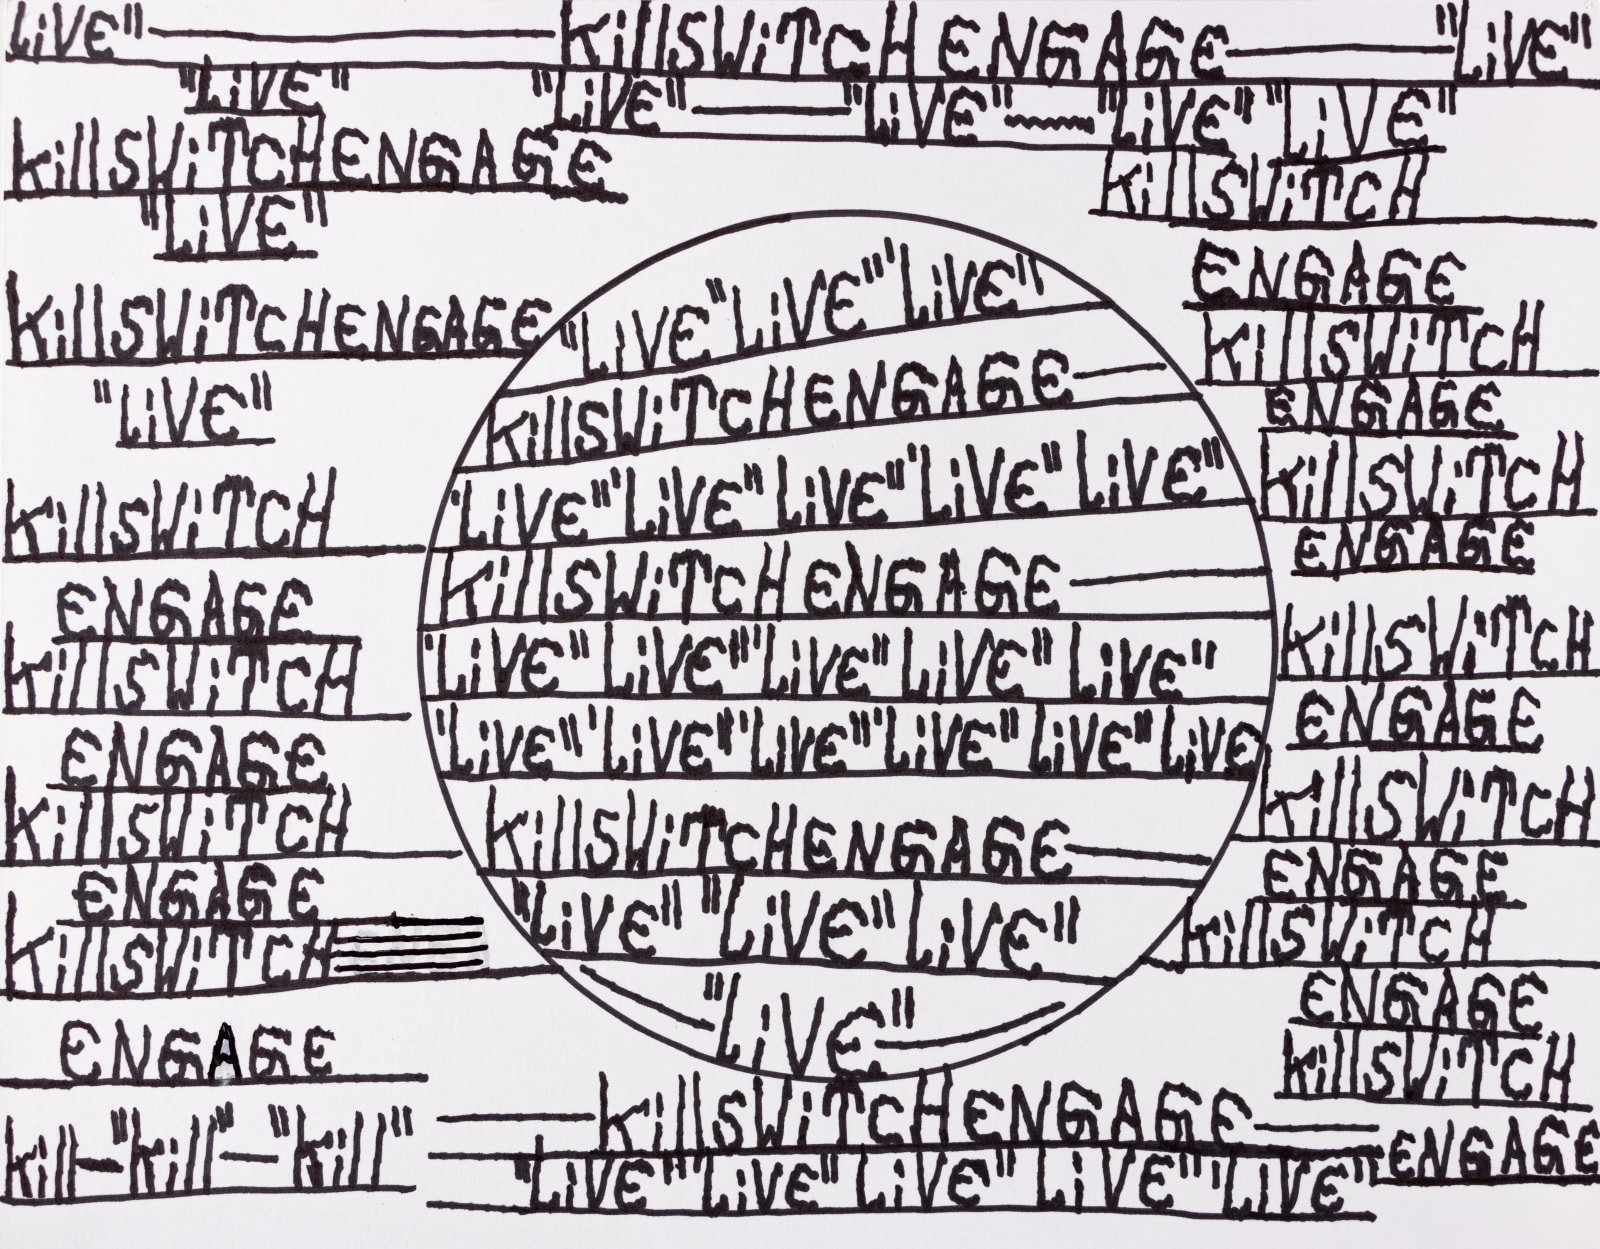 LiVE" KillSWiTCH ENGAGE "LiVE"
"LiVE" "LiVE" "LiVE" "LiVE" "LiVE"
KillSWiTCHENGAGE
"LiVE"
KillSWiTCHENGAGE
"LiVE"
KillSWiTCH
ENGAGE
KillSWiTCH
ENGAGE
KillSWiTCH
ENGAGE
KillSWiTCH
ENGAGE
kill-"kill"-"kill"
"LiVE" "LiVE" "LiVE"
KillSWiTCHENGAGE
"LiVE" "LiVE" "LiVE" "LiVE" LiVE"
KillSWiTCH ENGAGE
"LiVE" LiVE" "LiVE" LiVE" LiVE"
"LiVE" "LiVE" "LiVE" "LiVE" LiVE" LiVE
KillSWiTCHENGAGE
"LiVE" "LiVE" LiVE"
"LiVE"
KillSWiTCH
ENGAGE
KillSWiTCH
ENGAGE
KillSWiTCH
ENGAGE
KillSWiTCH
ENGAGE
KillSWiTCH
ENGAGE
KillSWiTCH
ENGAGE
KillSWiTCH
ENGAGE
KillSWiTCHENGAGE
"LiVE" "LiVE" LiVE" LiVE" "LiVE"